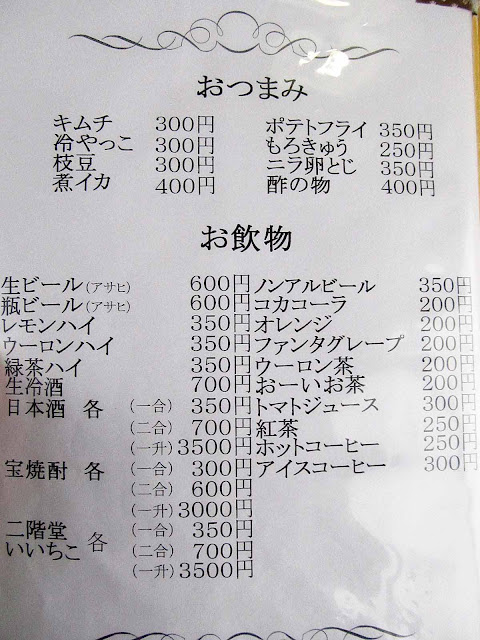 おつまみ
キムチ 300円
冷やっこ 300円
枝豆 300円
煮イカ 400円
ポテトフライ 350円
もろきゅう 250円
ニラ卵とじ 350円
酢の物 400円
お飲物
生ビール(アサヒ) 600円
瓶ビール(アサヒ) 600円
レモンハイ 350円
ウーロンハイ 350円
緑茶ハイ 350円
生冷酒 700円
日本酒 各 (一合) 350円
(二合) 700円
(一升) 3500円
宝焼酎 各 (一合) 300円
(二合) 600円
(一升) 3000円
二階堂 いいちこ 各 (一合) 350円
(二合) 700円
(一升) 3500円
ノンアルビール 350円
コカコーラ 200円
オレンジ 200円
ファンタグレープ 200円
ウーロン茶 200円
おーいお茶 200円
トマトジュース 300円
紅茶 250円
ホットコーヒー 250円
アイスコーヒー 300円